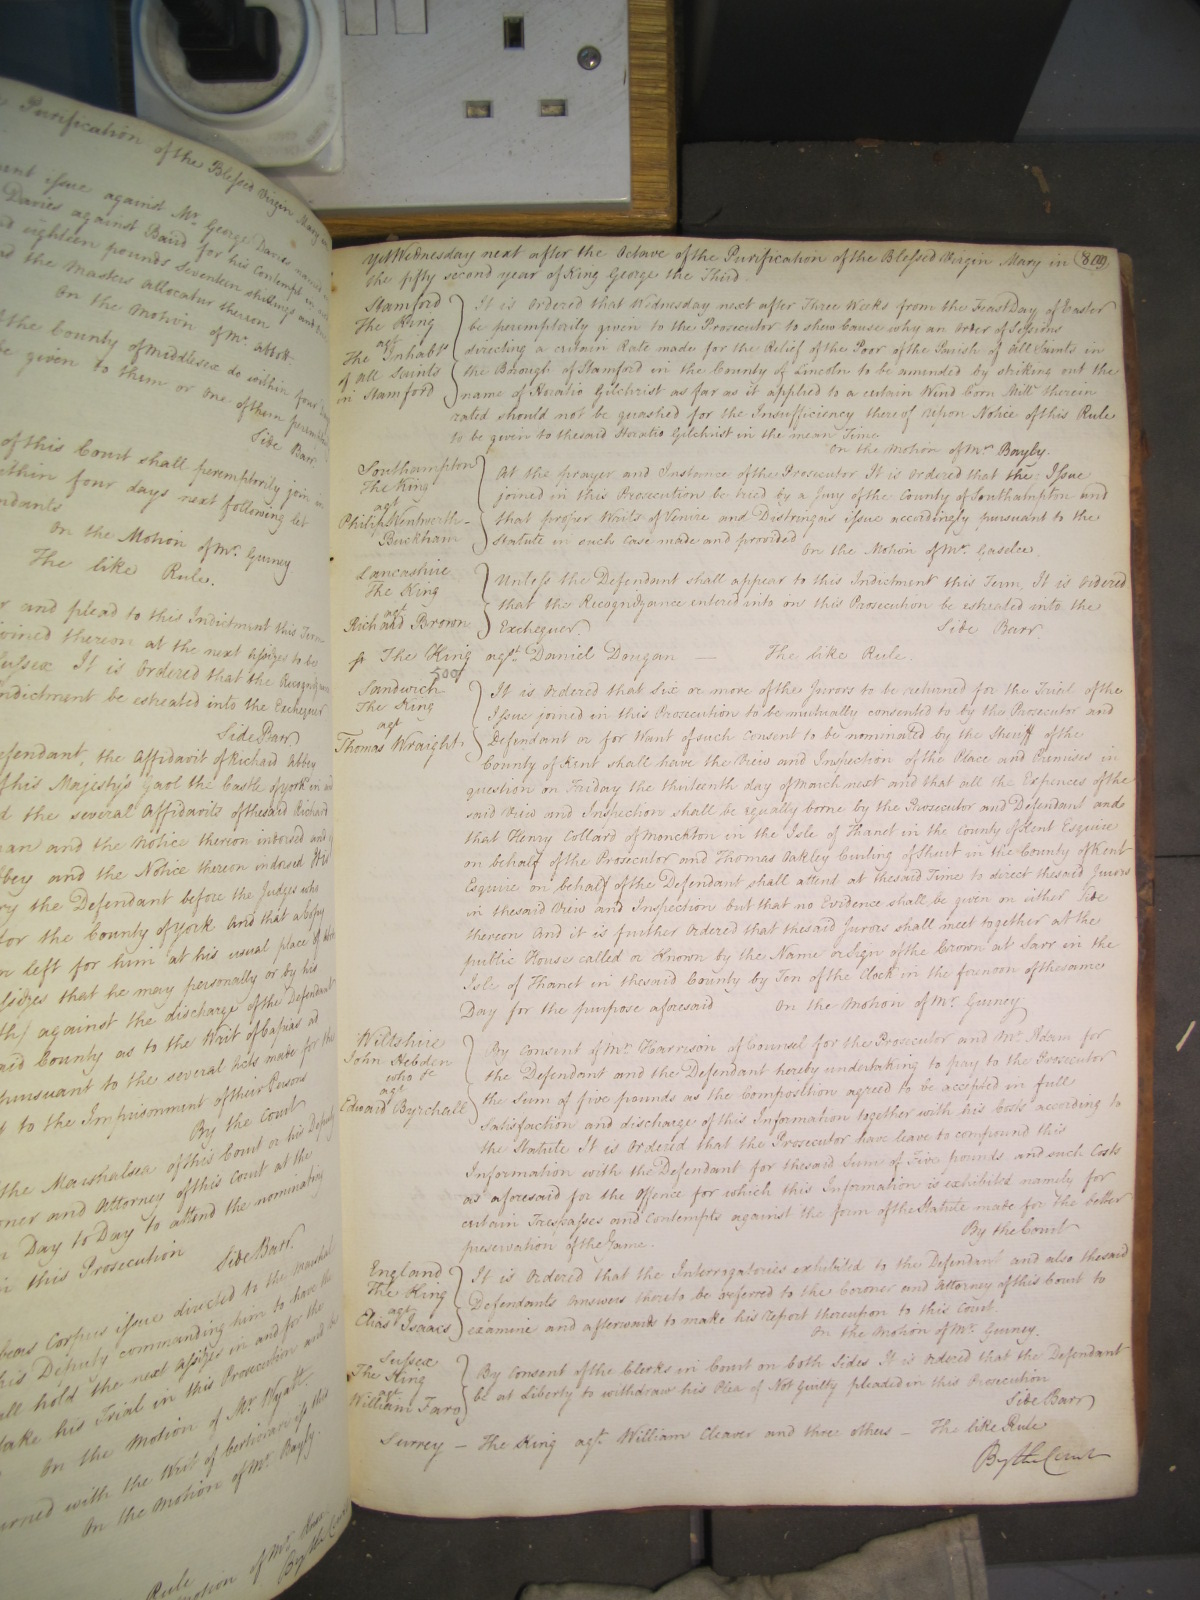 Purification of the Blessed Virgin Mary in
issue against Mr. George Davies
Davies against Baud for his Contempt in
eighteen pounds Seventeen shillings and
the Masters allocatur thereon
On the Motion of Mr. Abbott
the County of Middlesex do within four days
be given to them or one of them peremptorily
Side Barr
of this Court shall peremptorily join in
within four days next following let
On the Motion of Mr. Gurney
The like Rule.
and plead to this Indictment this Term
joined thereon at the next assizes to be
Sussex It is Ordered that the Recognizance
Indictment be estreated into the Exchequer
Side Barr
Defendant, the Affidavit of Richard Abbey
of his Majesty's Gaol the Castle of York in
the several Affidavits of the said Richard
and the Notice thereon indorsed and
Abbey and the Notice thereon indorsed
the Defendant before the Judges who
for the County of York And that a Copy
left for him at his usual place of
Assizes that he may personally or by his
against the discharge of the Defendant
said County as to the Writ of Capias ad
pursuant to the several Acts made for the
to the Imprisonment of their Persons
By the Court
the Marshalsea of this Court or his Deputy
Coroner and Attorney of this Court at the
Day to Day to attend the nominating
in this Prosecution
Side Barr.
Habeas Corpus issue directed to the Marshal
his Deputy commanding him to have the
hold the next Assizes in and for the
take his Trial in this Prosecution and
On the Motion of Mr. Wyatt.
returned with the Writ of Certiorari
On the Motion of Mr. Bayly.
Rule
Motion of Mr.
By the Court
Yet Wednesday next after the Octave of the Purification of the Blessed Virgin Mary in 809
the fifty second year of King George the Third.
Stamford
The King
agt
The Inhabts
of all Saints
in Stamford
It is Ordered that Wednesday next after Three Weeks from the Feast Day of Easter
be peremptorily given to the Prosecutor to shew Cause why an Order of Sessions
directing a certain Rate made for the Relief of the Poor of the Parish of All Saints in
the Borough of Stamford in the County of Lincoln to be amended by striking out the
name of Horatio Gilchrist as far as it applied to a certain Wind Corn Mill therein
rated should not be quashed for the Insufficiency thereof Upon Notice of this Rule
to be given to the said Horatio Gilchrist in the mean Time
On the Motion of Mr. Bayly.
Southampton
The King
agt
Philip Wentworth
Buckham
At the prayer and Instance of the Prosecutor It is Ordered that the Issue
joined in this Prosecution be tried by a Jury of the County of Southampton and
that proper Writs of Venire and Distringas issue accordingly pursuant to the
Statute in such Case made and provided
On the Motion of Mr. Gaselee.
Lancashire
The King
agt
Richard Brown
Unless the Defendant shall appear to this Indictment this Term, It is Ordered
that the Recognizance entered into on this Prosecution be estreated into the
Exchequer.
Side Barr.
The King agt. Daniel Dongan — The like Rule.
Sandwich
The King
agt
Thomas Wraight
It is Ordered that Six or more of the Jurors to be returned for the Trial of the
Issue joined in this Prosecution to be mutually consented to by the Prosecutor and
Defendant or for Want of such Consent to be nominated by the Sheriff of the
County of Kent shall have the View and Inspection of the Place and Premises in
question on Friday the thirteenth day of March next and that all the Expences of the
said View and Inspection shall be equally borne by the Prosecutor and Defendant and
that Henry Collard of Monckton in the Isle of Thanet in the County of Kent Esquire
on behalf of the Prosecutor and Thomas Oakley Curling of Shuart in the County of Kent
Esquire on behalf of the Defendant shall attend at the said Time to direct the said Jurors
in the said View and Inspection but that no Evidence shall be given on either Side
thereon And it is further Ordered that the said Jurors shall meet together at the
public House called or Known by the Name or Sign of the Crown at Sarr in the
Isle of Thanet in the said County by Ten of the Clock in the forenoon of the same
Day for the purpose aforesaid On the Motion of Mr. Gurney
Wiltshire
John Hebden
who &c
agt
Edward Byrchall
By Consent of Mr. Harrison of Counsel for the Prosecutor and Mr. Adam for
the Defendant and the Defendant hereby undertaking to pay to the Prosecutor
the Sum of five pounds as the Composition agreed to be accepted in full
Satisfaction and discharge of this Information together with his Costs according to
the Statute It is Ordered that the Prosecutor have leave to compound this
Information with the Defendant for the said Sum of Five pounds and such Costs
as aforesaid for the Offence for which this Information is exhibited namely for
certain Trespasses and Contempts against the form of the Statute made for the better
preservation of the Game.
By the Court
England
The King
agt
Elias Isaacs
It is Ordered that the Interrogatories exhibited to the Defendant and also the said
Defendants Answers thereto be referred to the Coroner and Attorney of this Court to
examine and afterwards to make his report thereupon to this Court.
On the Motion of Mr. Gurney.
Sussex
The King
agt
William Faro
By Consent of the Clerks in Court on both Sides It is Ordered that the Defendant
be at Liberty to withdraw his Plea of Not Guilty pleaded in this Prosecution
Side Barr
Surrey — The King agt. William Cleaver and three others — The like Rule
By the Court